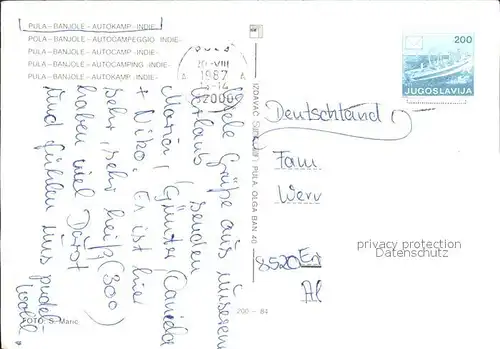 PULA-BANJOLE-AUTOKAMP-INDIE-
PULA-BANJOLE-AUTOCAMPEGGIO INDIE-
PULA-BANJOLE-AUTOCAMP-INDIE-
PULA-BANJOLE-AUTOCAMPING INDIE-
PULA-BANJOLE-AUTOKAMP-INDIE-
VIII
1987
52000
200
JUGOSLAVIJA
Viele Grüße aus unserem
Urlaub senden
Günter Daniela
+ Niko. Es ist hier
sehr, sehr heiß (30°)
haben viel Durst
und fühlen uns pudel
wohl
PULA OLGA BAN 40
Deutschland
Fam
Werv
8520 Er
Al
privacy protection
Datenschutz
200 - 84
FOTO: S. Maric